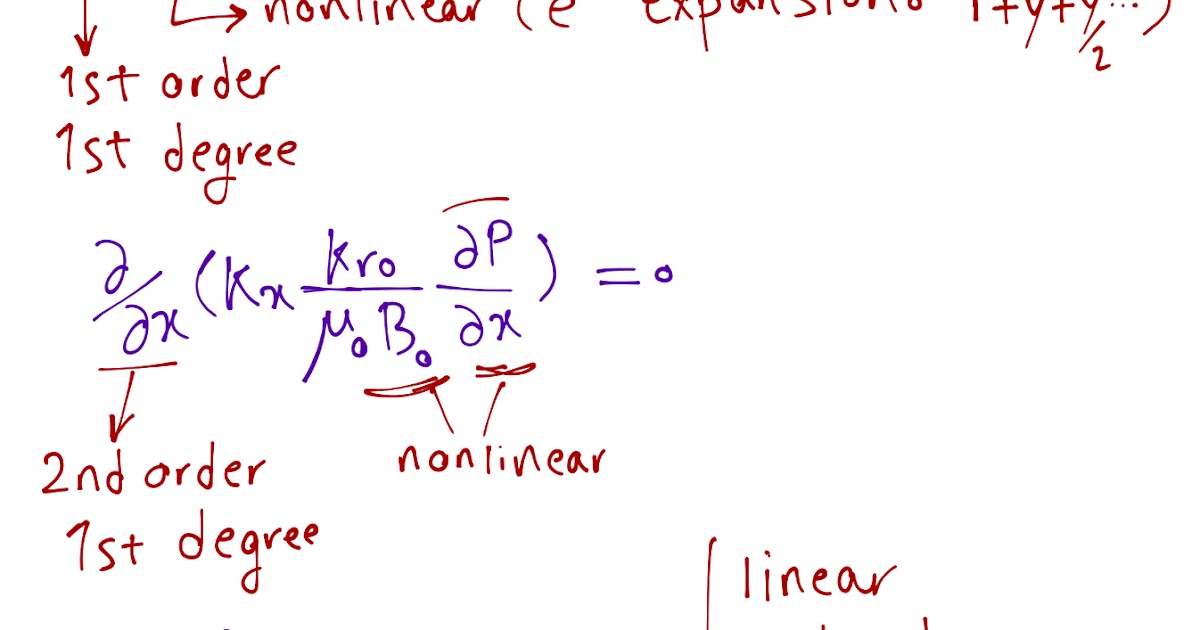 nonlinear (e expansions 1+y+y.../2)
1st order
1st degree
∂/∂x (Kx kro/μoBo ∂P/∂x) = 0
2nd order
nonlinear
1st degree
linear